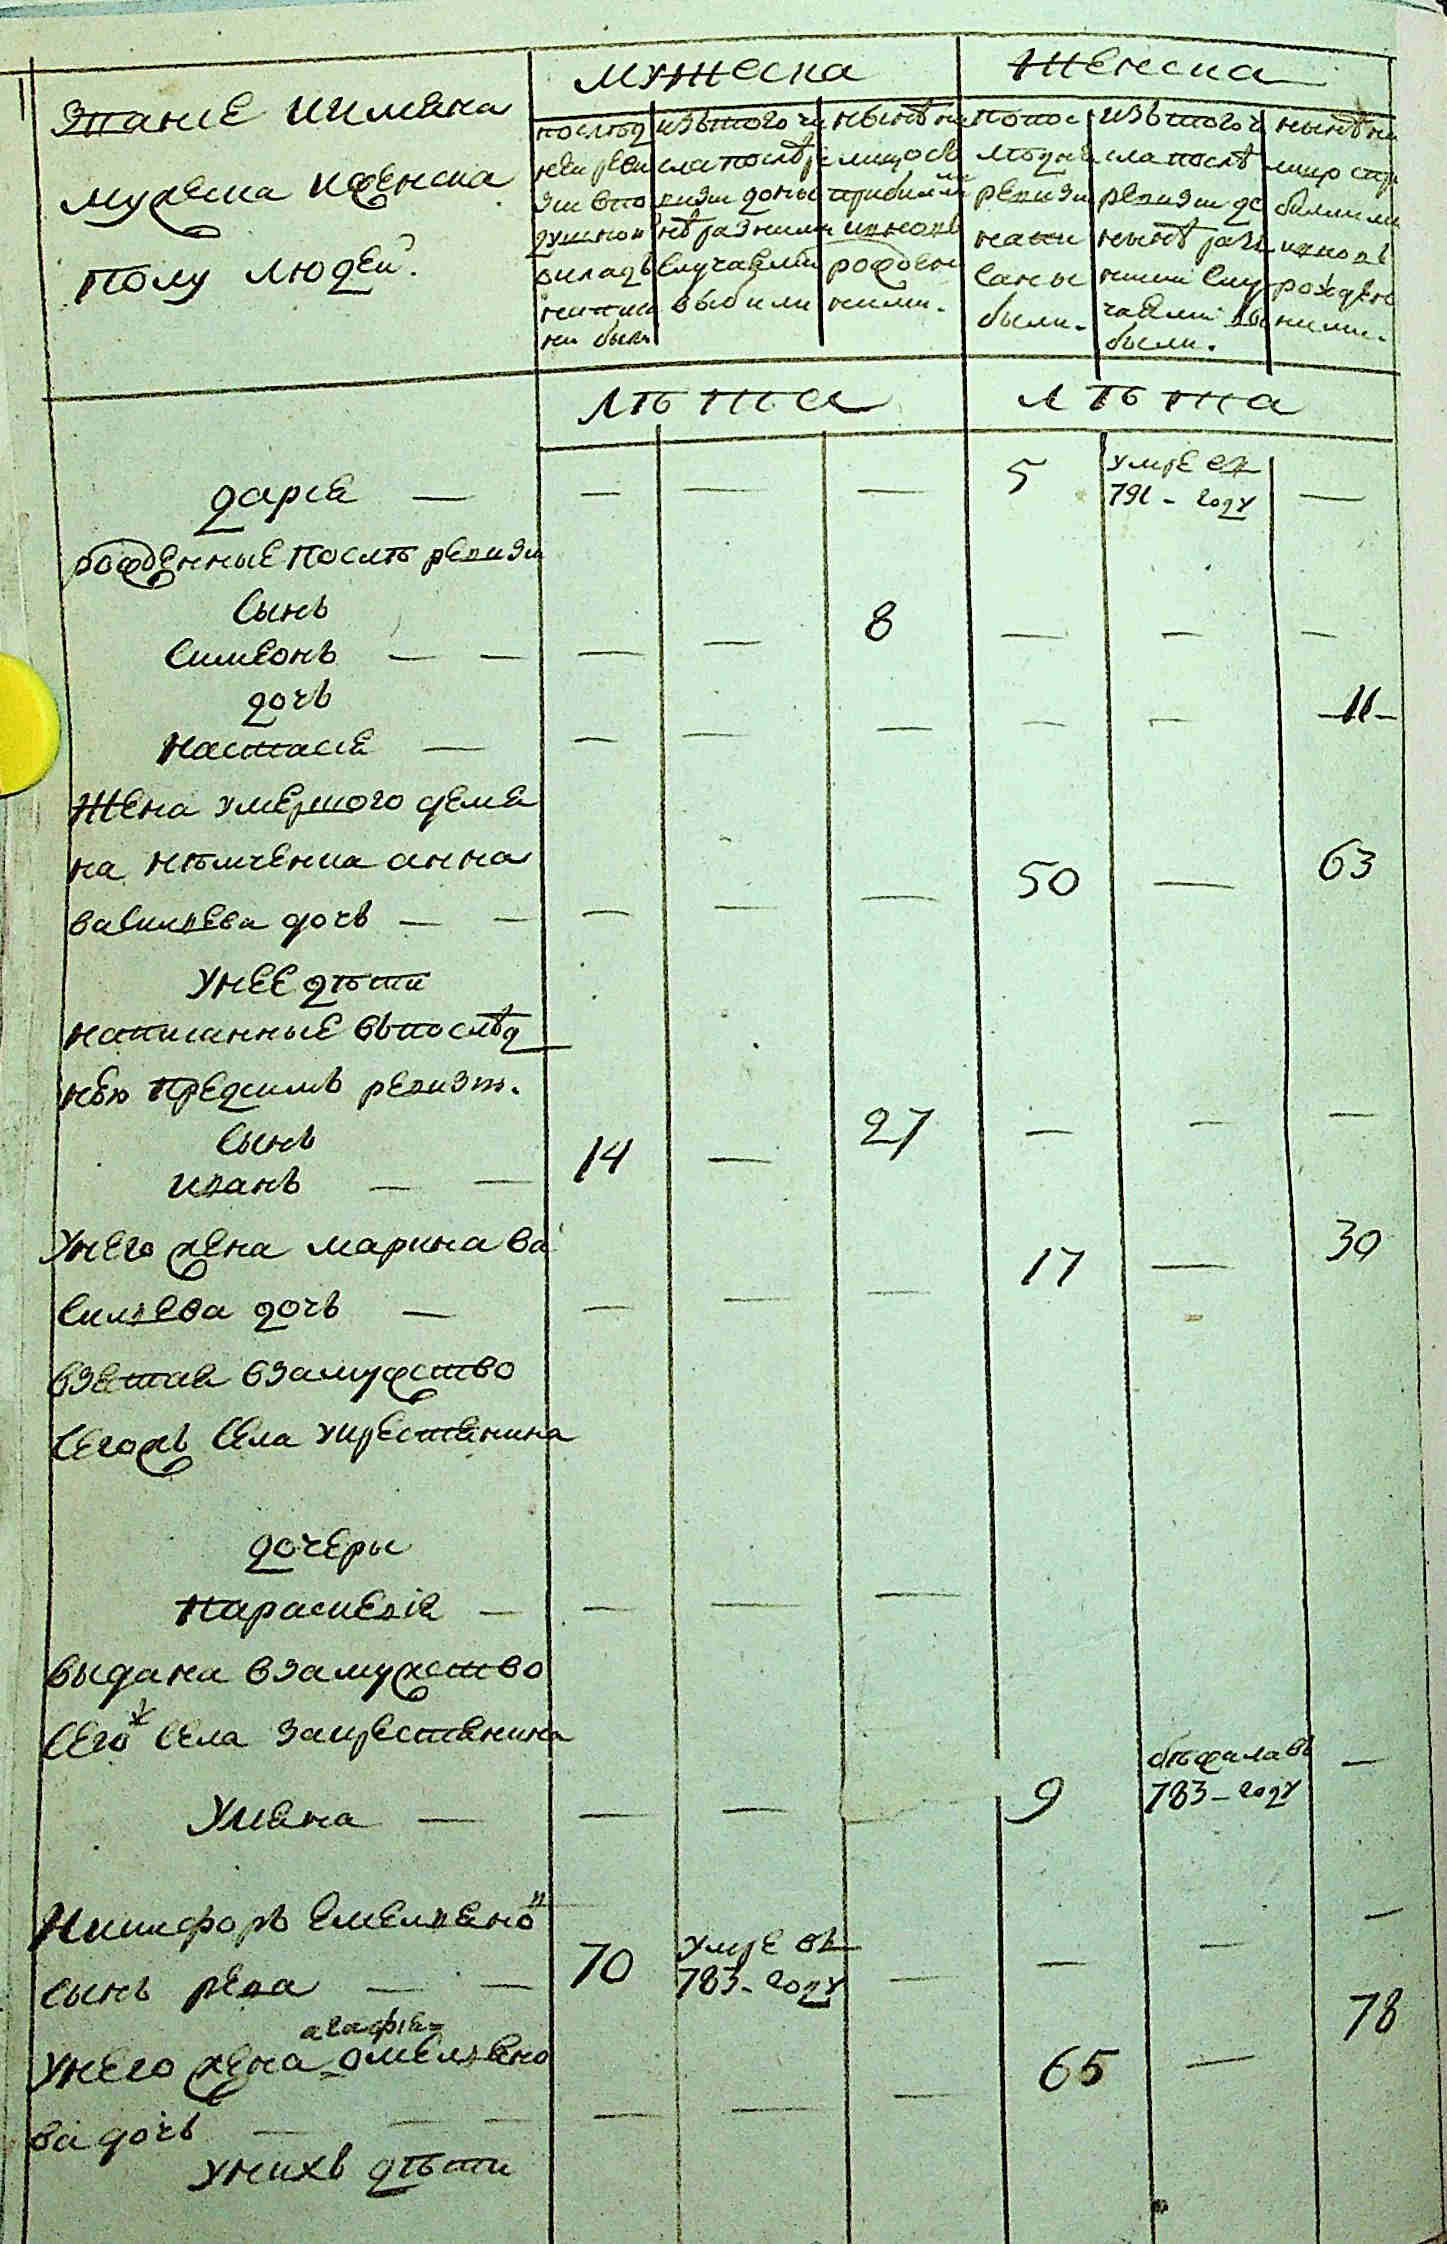 Звание иимяна
мужеска иженска
полу людеи.
мужеска
женска
послѣд
неи реви
зіи впо
душном
окладѣ
написа
ни были
изътого чи
сла послѣ ре
визіи доны
нѣ разними
случаями
выбили
нынѣ на
лицо съ
прибилми
ивновь
рожден
ними.
попос
лѣдне
ревизіи
напи
саны
были.
изътого ч
сла послѣ
ревизіи до
нынѣ разъ
ними слу
чаями вы
были.
нынѣ на
лицо спри
билими
ивновь
рожден
ними.
лѣта
лѣта
дарія — — — — 5 умре въ 791 - году —
рожденные послѣ ревизіи
сынъ
симеонъ — — — — 8 — — —
дочь
настасія — — — — — — 11 -
жена умершого демя
на нѣмченка анна
васильева дочь — — — — — 50 — 63
унее дѣти
написанные въпослѣд
нею предсимъ ревизію.
сынъ
иванъ — — 14 — 27 — — —
унего жена марина ва
сильева дочь — — — — 17 — 30
взятая взамужство
сегожъ села укрестянина
дочеры
параскевія — — — —
выдана взамужство
сегож села закрестянина
уляна — — — 9 бѣжала въ 783 - году —
Никифоръ емельянов
сынъ рева — — 70 умре въ 783 - году — — — —
агафія
унего жена омельяно
ва дочь — — — — — — 65 — 78
унихъ дѣти